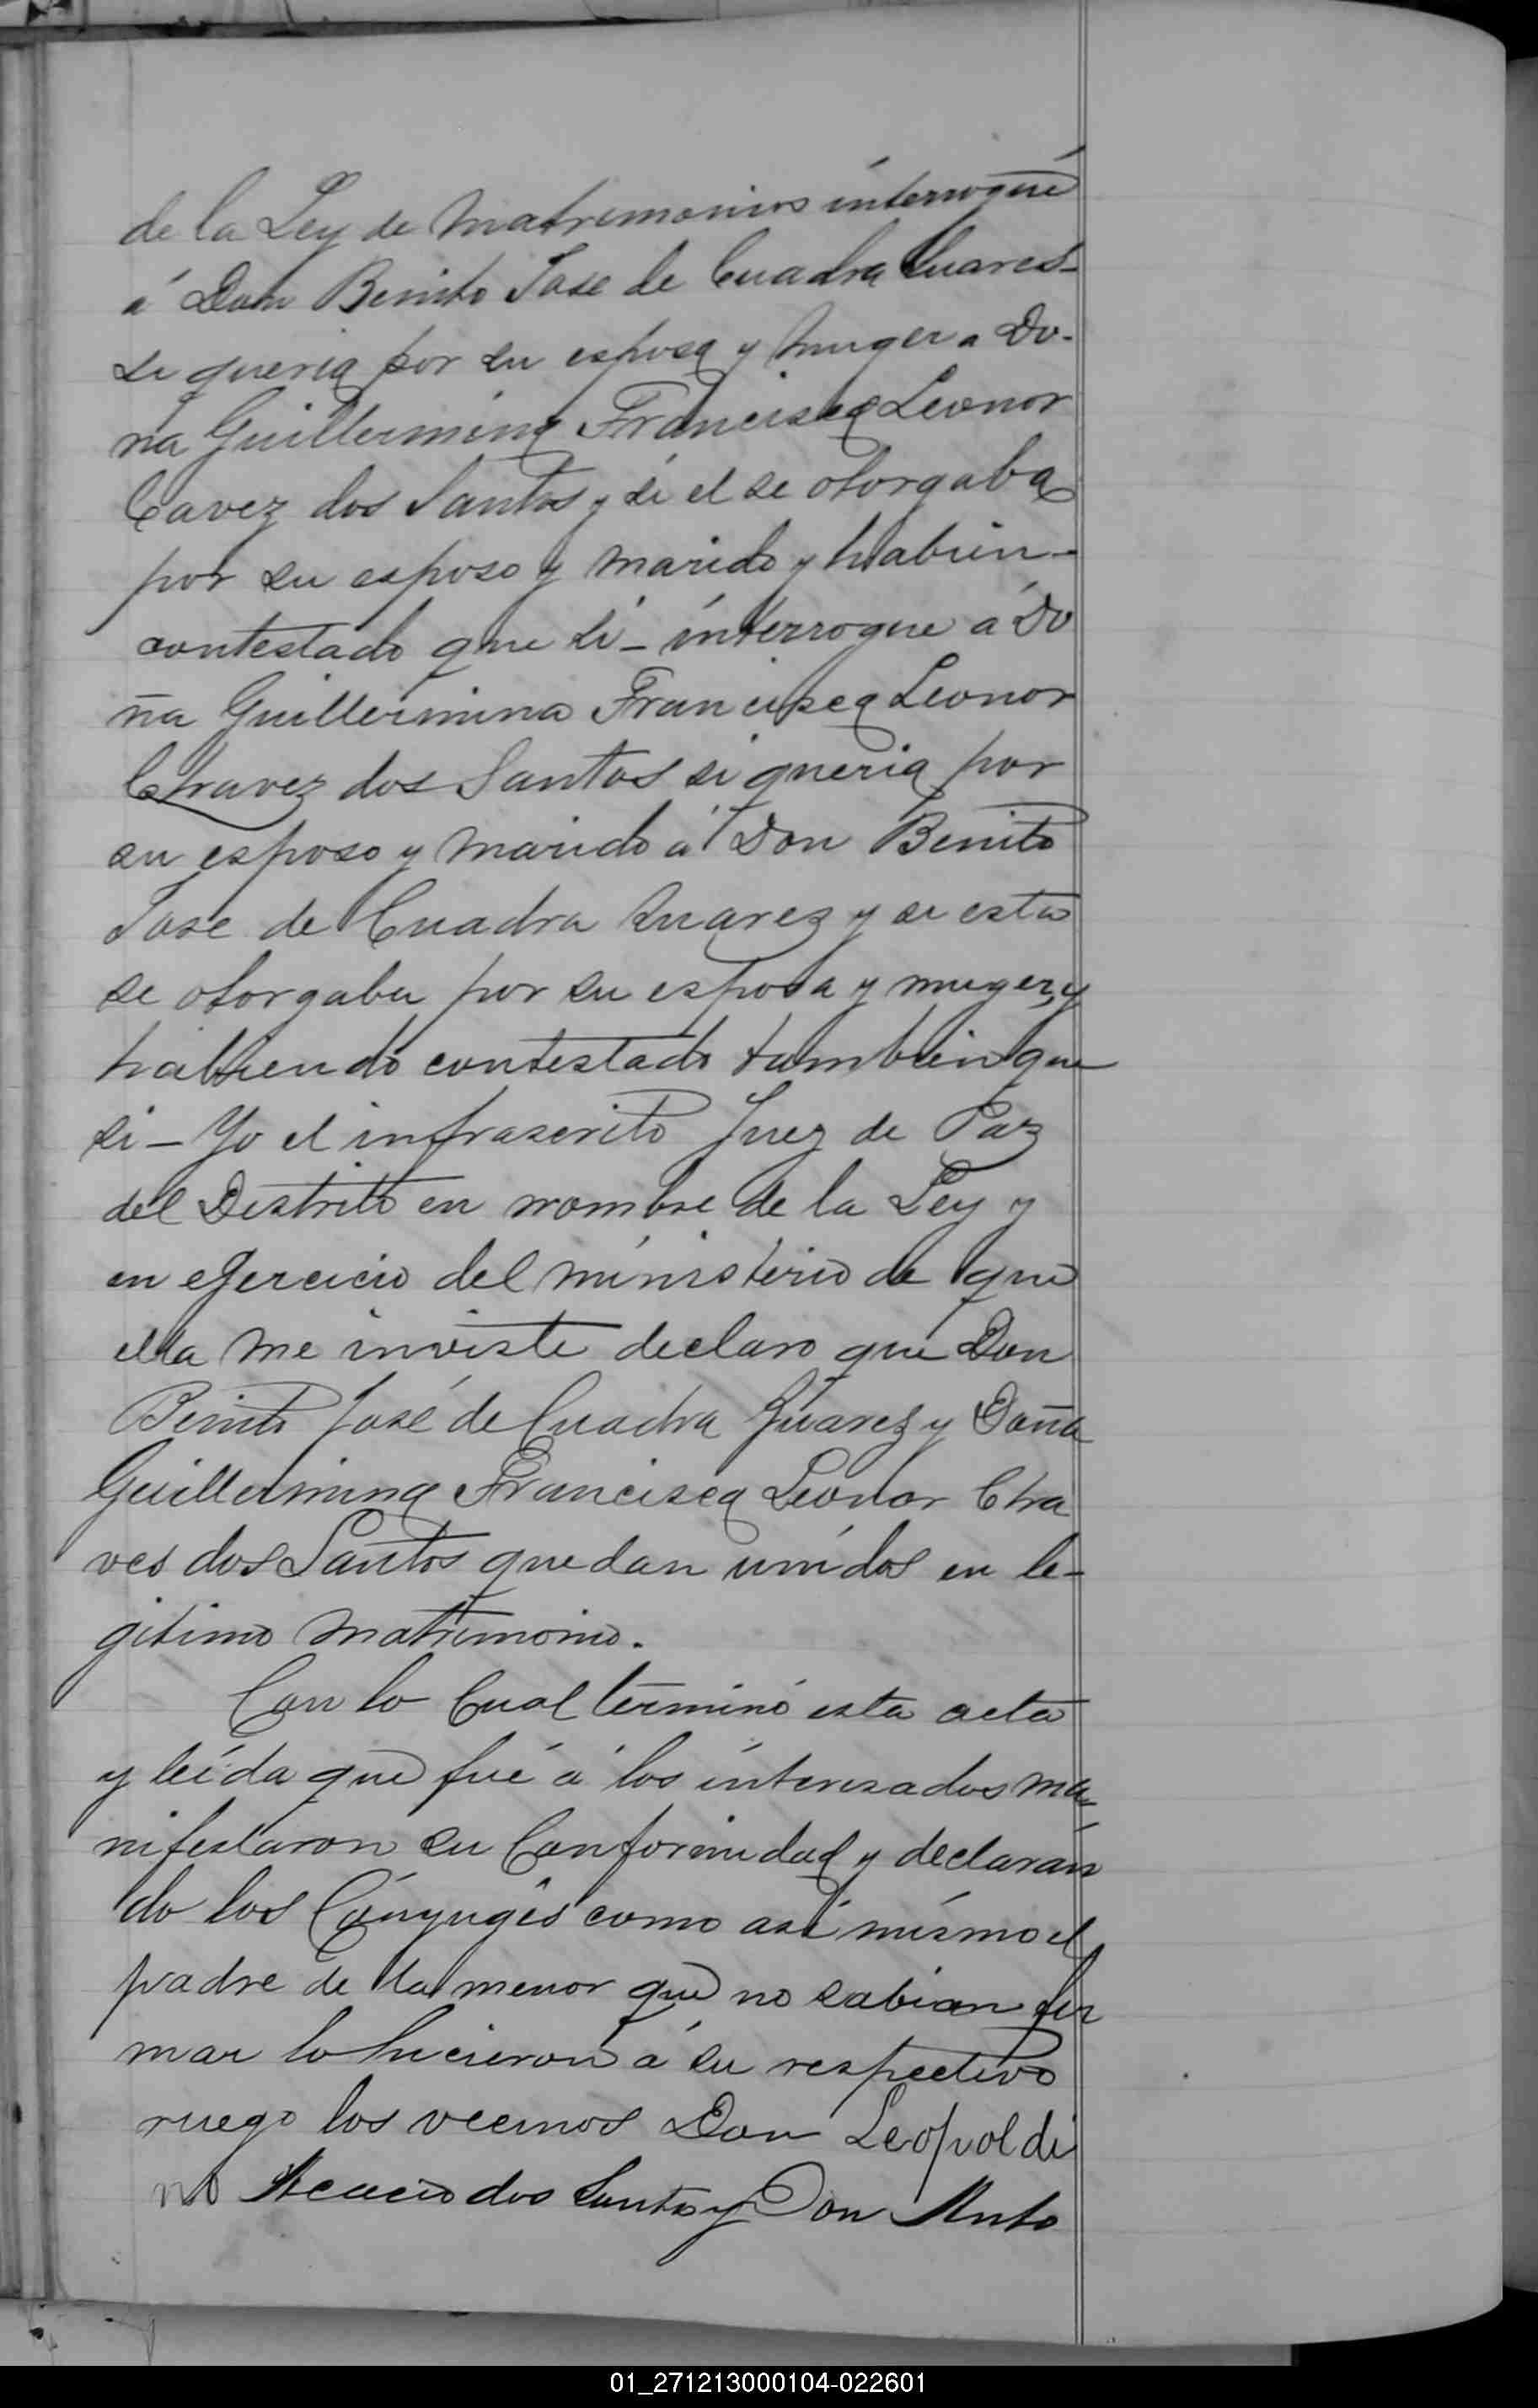 de la Ley de Matrimonios interrogué
á Don Benito Jose de Cuadra Suares
si queria por su esposa y muger a Do-
ña Guillermina Francisca Leonor
Cavez dos Santos y si el se otorgaba
por su esposo y marido y habien-
contestado que si_ interrogue á Do
ña Guillermina Francisca Leonor
Chavez dos Santos si queria por
su esposo y marido á Don Benito
Jose de Cuadra Suarez y si esta
se otorgaba por su esposa y muger, y
habiendo contestado tambien que
si_ Yo el infrascrito Juez de Paz
del Distrito en nombre de la Ley y
en ejercicio del ministerio de que
ella me inviste declaro que Don
Benito José de Cuadra Suarez y Doña
Guillermina Francisca Leonor Cha
ves dos Santos quedan unidos en le-
gitimo matrimonio.
Con lo Cual terminó esta acta
y leída que fué á los interesados ma-
nifestaron su Conformidad y declaran
do los Cónyuges como así mismo el
padre de la menor que no sabian fir
mar lo hicieron á su respectivo
ruego los vecinos Don Leopoldi
no Acacio dos Santos y Don Anto
01_271213000104-022601